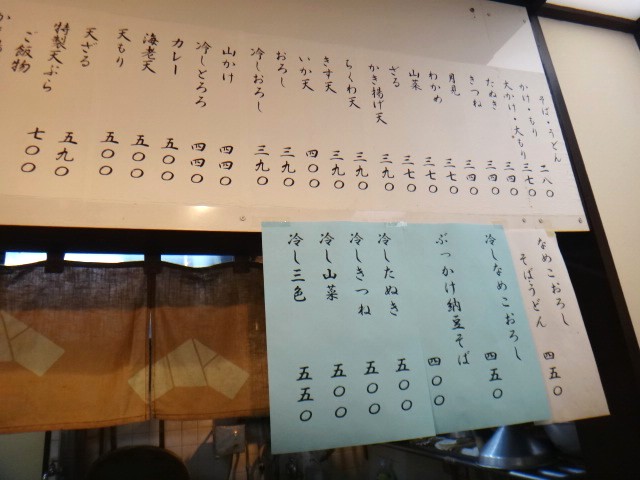 そば・うどん
かけ・もり 二八〇
大かけ・大もり 三七〇
たぬき 三四〇
きつね 三四〇
月見 三四〇
わかめ 三七〇
山菜 三七〇
ざる 三七〇
かき揚げ天 三九〇
ちくわ天 三九〇
きす天 三九〇
いか天 四〇〇
おろし 三九〇
冷しおろし 三九〇
山かけ 四四〇
冷しとろろ 四四〇
カレー 五〇〇
海老天 五〇〇
天もり 五〇〇
天ざる 五九〇
特製天ぷら 七〇〇
ご飯物
なめこおろし
そばうどん 四五〇
冷しなめこおろし 四五〇
ぶっかけ納豆そば 四〇〇
冷したぬき 五〇〇
冷しきつね 五〇〇
冷し山菜 五〇〇
冷し三色 五五〇